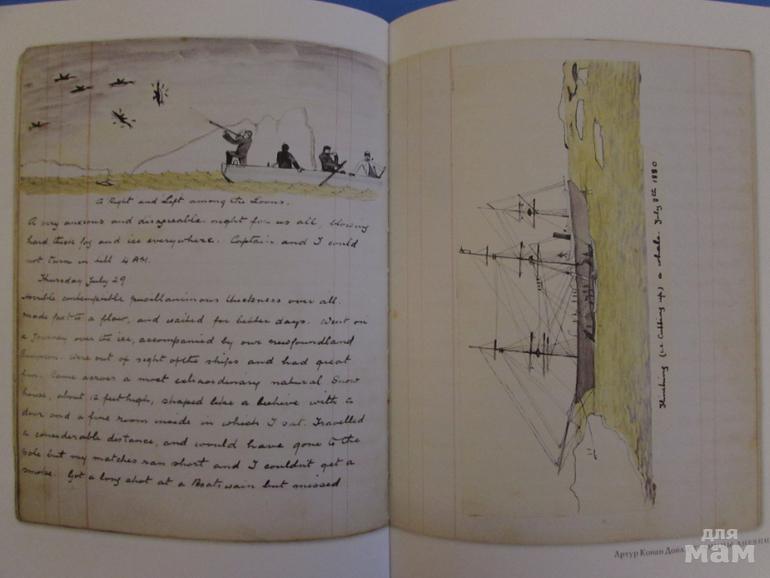 A Right and Left among the Loons.
A very anxious and disagreeable night for us all, blowing
hard thick fog and ice everywhere. Captain and I could
not turn in till 4 AM.
Thursday July 29
Horrible contemptible pusillaminous thickness over all.
made fast to a flaw, and waited for better days. Went on
a Journey over the ice, accompanied by our newfoundland
Were out of sight of the ships and had great
fun. Came across a most extraordinary natural Snow
house, about 12 feet high, shaped like a beehive with a
door and a fine room inside in which I sat. Travelled
a considerable distance, and would have gone to the
Pole but my matches ran short and I couldn't get a
smoke. Got a long shot at a Boatswain but missed
Flenching (i.e. Cutting up) a whale. July 8th 1880
Артур Конан Дойл
для
мам